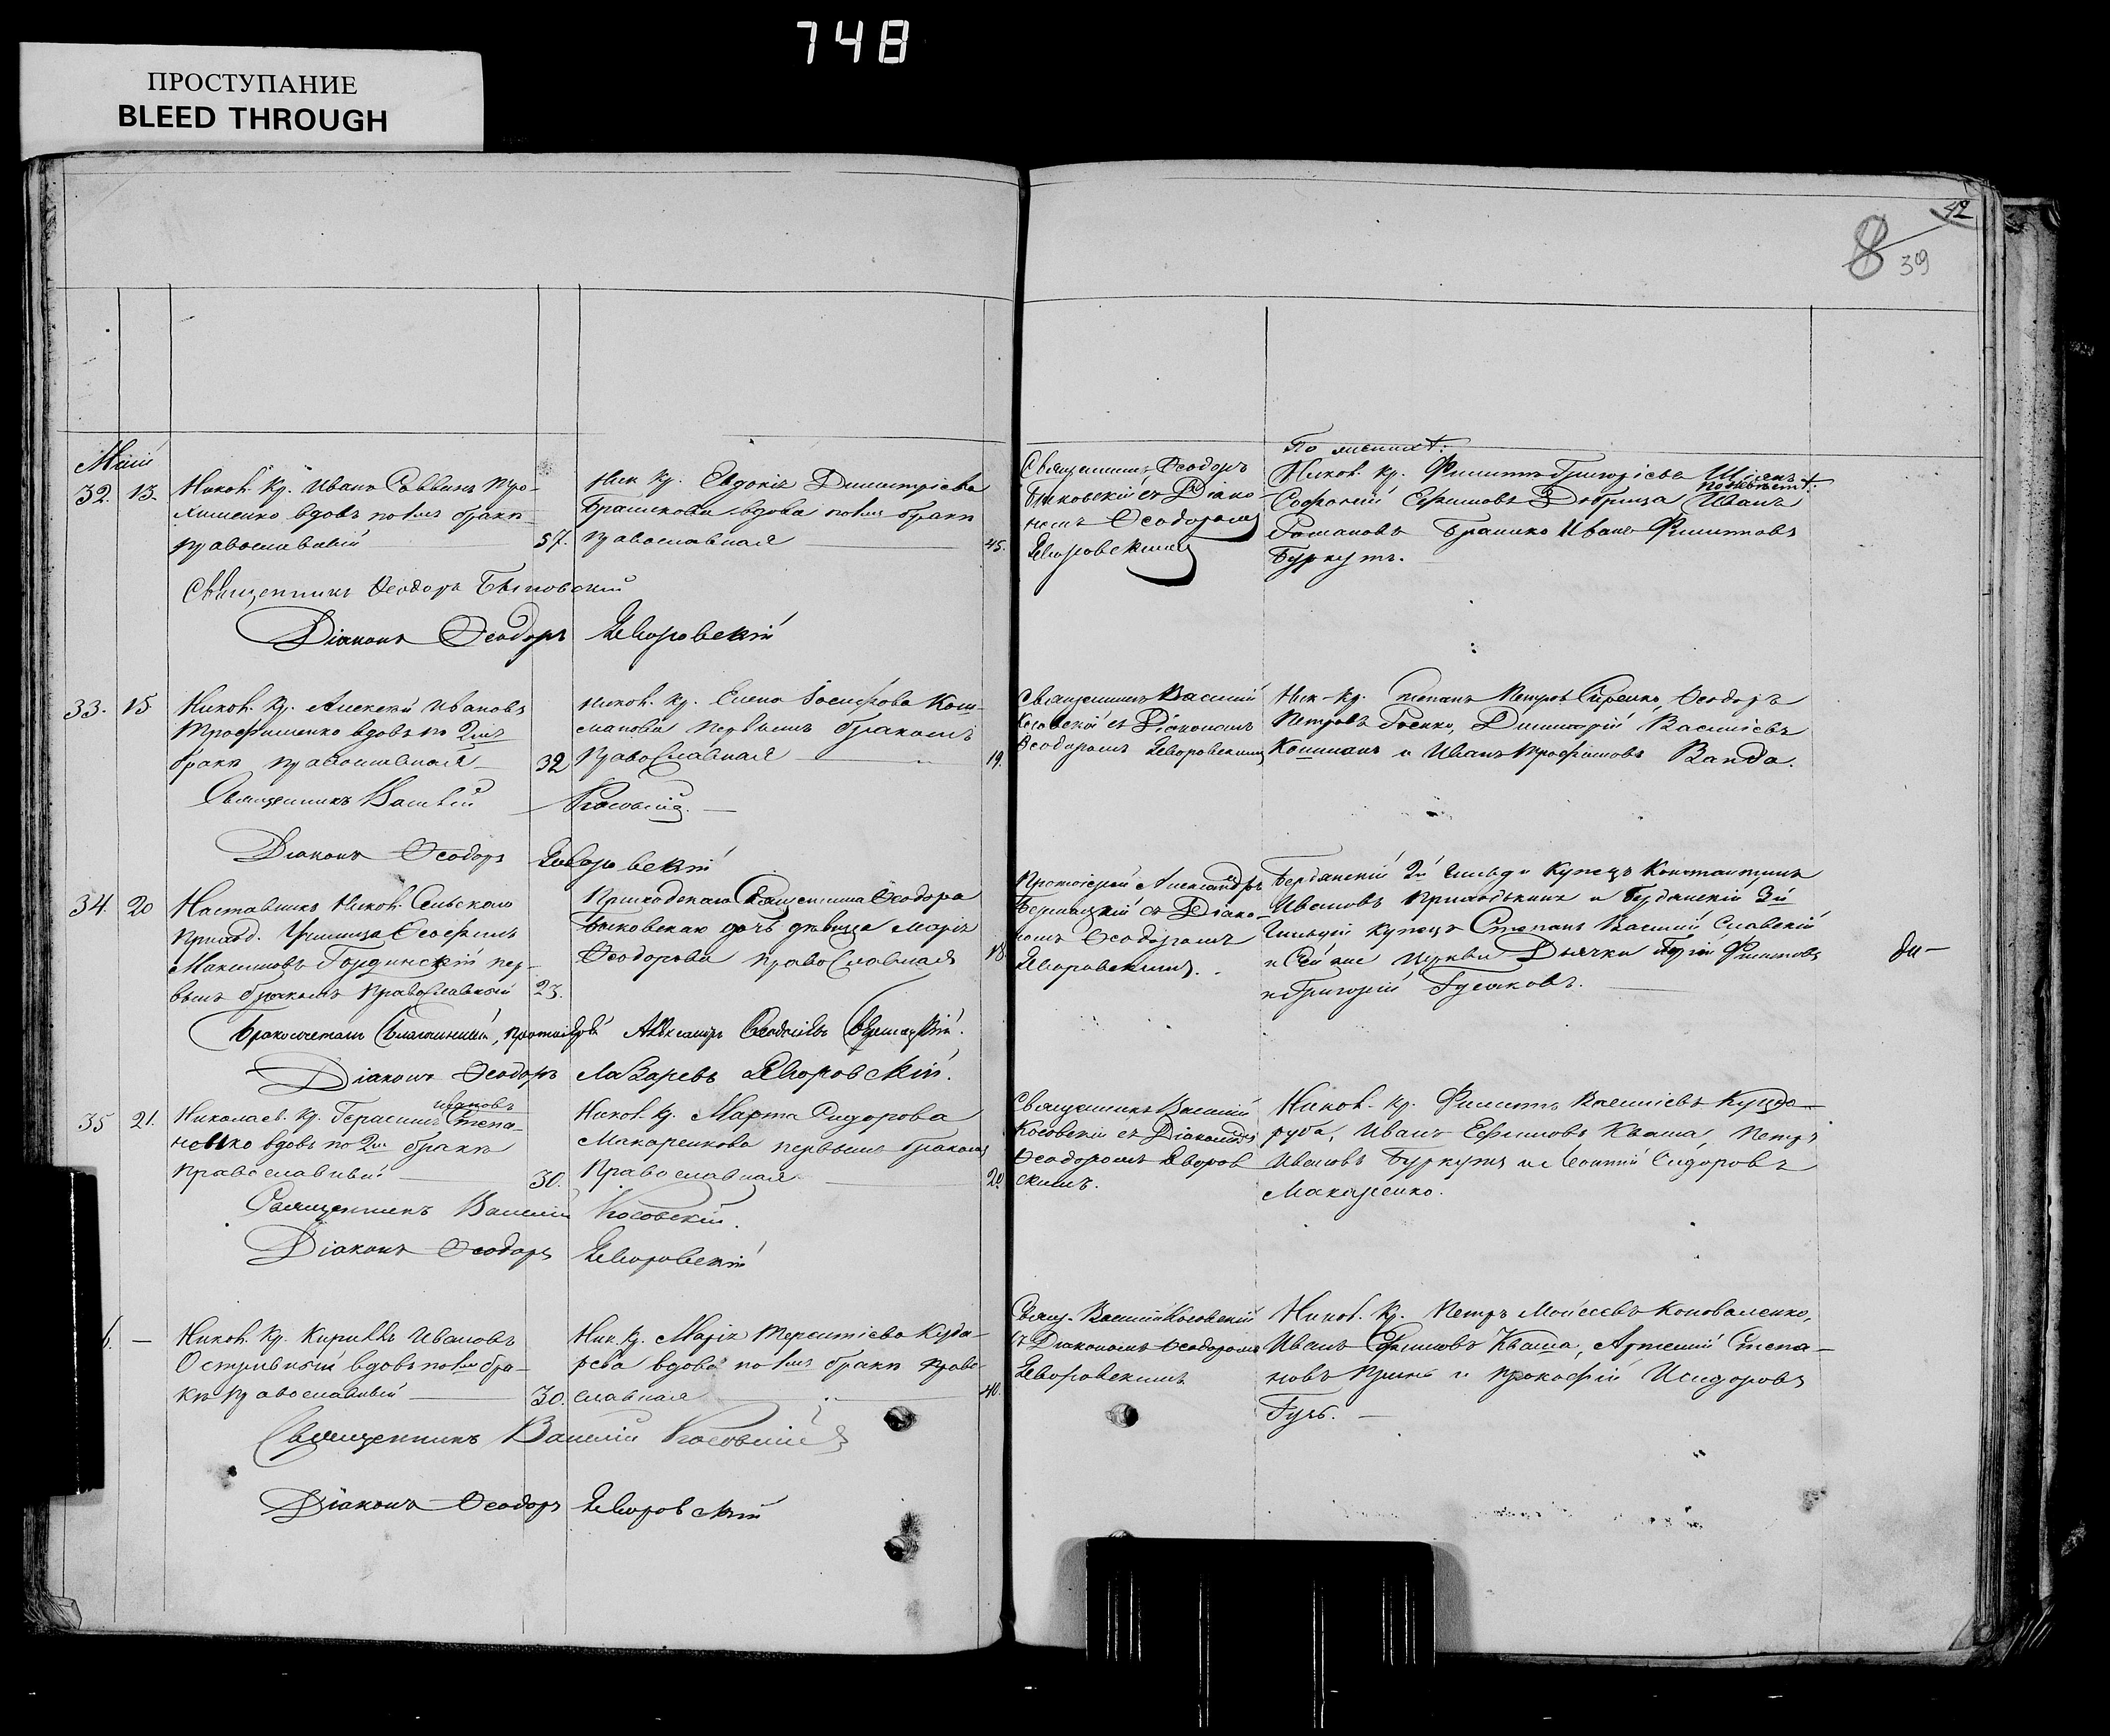 748
ПРОСТУПАНИЕ
BLEED THROUGH
42
8
39
Май
32. 13. Никол. Кр. Иванъ Саввинъ Тро-
хименко вдовъ по 1мъ бракѣ
православный 57.
Ник. Кр. Евдокія Димитріева
Брашкова вдова по 1мъ бракѣ
православная 45.
Священникъ Ѳеодоръ
Быковскій съ Діако-
номъ Ѳеодоромъ
Яворовскимъ
По женихѣ:
Никол. Кр. Филиппъ Григорьевъ
Софроній Ефимовъ Добрица по невѣстѣ: Иванъ
Романовъ Брашко Иванъ Филиповъ
Буркутъ.
Священникъ Ѳеодоръ Быковскій
Діаконъ Ѳеодоръ Яворовскій
33. 15 Никол. Кр. Алексѣй Ивановъ
Трофименко вдовъ по 2мъ
бракѣ православный 32
Никол. Кр. Елена Іосифова Кош-
манова первымъ бракомъ
Православная 19.
Священникъ Василій
Косовскій съ Діакономъ
Ѳеодоромъ Яворовскимъ
Ник. Кр. Степанъ Петровъ Ѳеодоръ
Петровъ Димитрій Васильевъ
Кошманъ и Иванъ Трофимовъ Ванда.
Священникъ Василій Косовскій
Діаконъ Ѳеодоръ Яворовскій
34. 20 Наставникъ Никол. Сельскаго
Приход. Училища Ѳеофилъ
Максимовъ Гординскій пер-
вымъ бракомъ Православный 23.
Приходскаго Священника Ѳеодора
Быковскаго дочь дѣвица Марія
Ѳеодорова православная 18
Протоіерей Александръ
съ Діако-
номъ Ѳеодоромъ
Яворовскимъ.
Бердянскій 2й гильди купецъ Константинъ
Ивановъ Приходькинъ и Бердянскій 3й
Гильдіи купецъ Степанъ Василій Славскій
и Сей же церкви Дьячки Филиповъ
и Григорій Гусаковъ.
да—
Бракосочеталъ Благочинный, Протоіерей Александръ
Діаконъ Ѳеодоръ Лазаревъ Яворовскій.
35 21. Николаев. Кр. Герасимъ Ивановъ Степа-
ненко вдовъ по 2мъ бракѣ
православный 30.
Никол. Кр. Марта Сидорова
Макаренкова первымъ бракомъ
Православная 20
Священникъ Василій
Косовскій съ Діакономъ
Ѳеодоромъ Яворов
скимъ.
Никол. Кр. Филиппъ Васильевъ Куцдо-
руба, Иванъ Ефимовъ Кваша, Петръ
Ивановъ Буркутъ и Леонтій Сидоровъ
Макаренко.
Священникъ Василій Косовскій.
Діаконъ Ѳеодоръ Яворовскій
6. — Никол. Кр. Кириллъ Ивановъ
вдовъ по 1мъ бра-
кѣ православный 30.
Ник. Кр. Марія Терентіева Куда-
рева вдова по 1мъ бракѣ право-
славная 40.
Свящ. Василій Косовскій
съ Діакономъ Ѳеодоромъ
Яворовскимъ
Никол. Кр. Петръ Моисеевъ Коноваленко,
Иванъ Ефимовъ Кваша, Артемій Степа-
новъ и Прокофій Исидоровъ
Гузь.
Священникъ Василій Косовскій
Діаконъ Ѳеодоръ Яворовскій